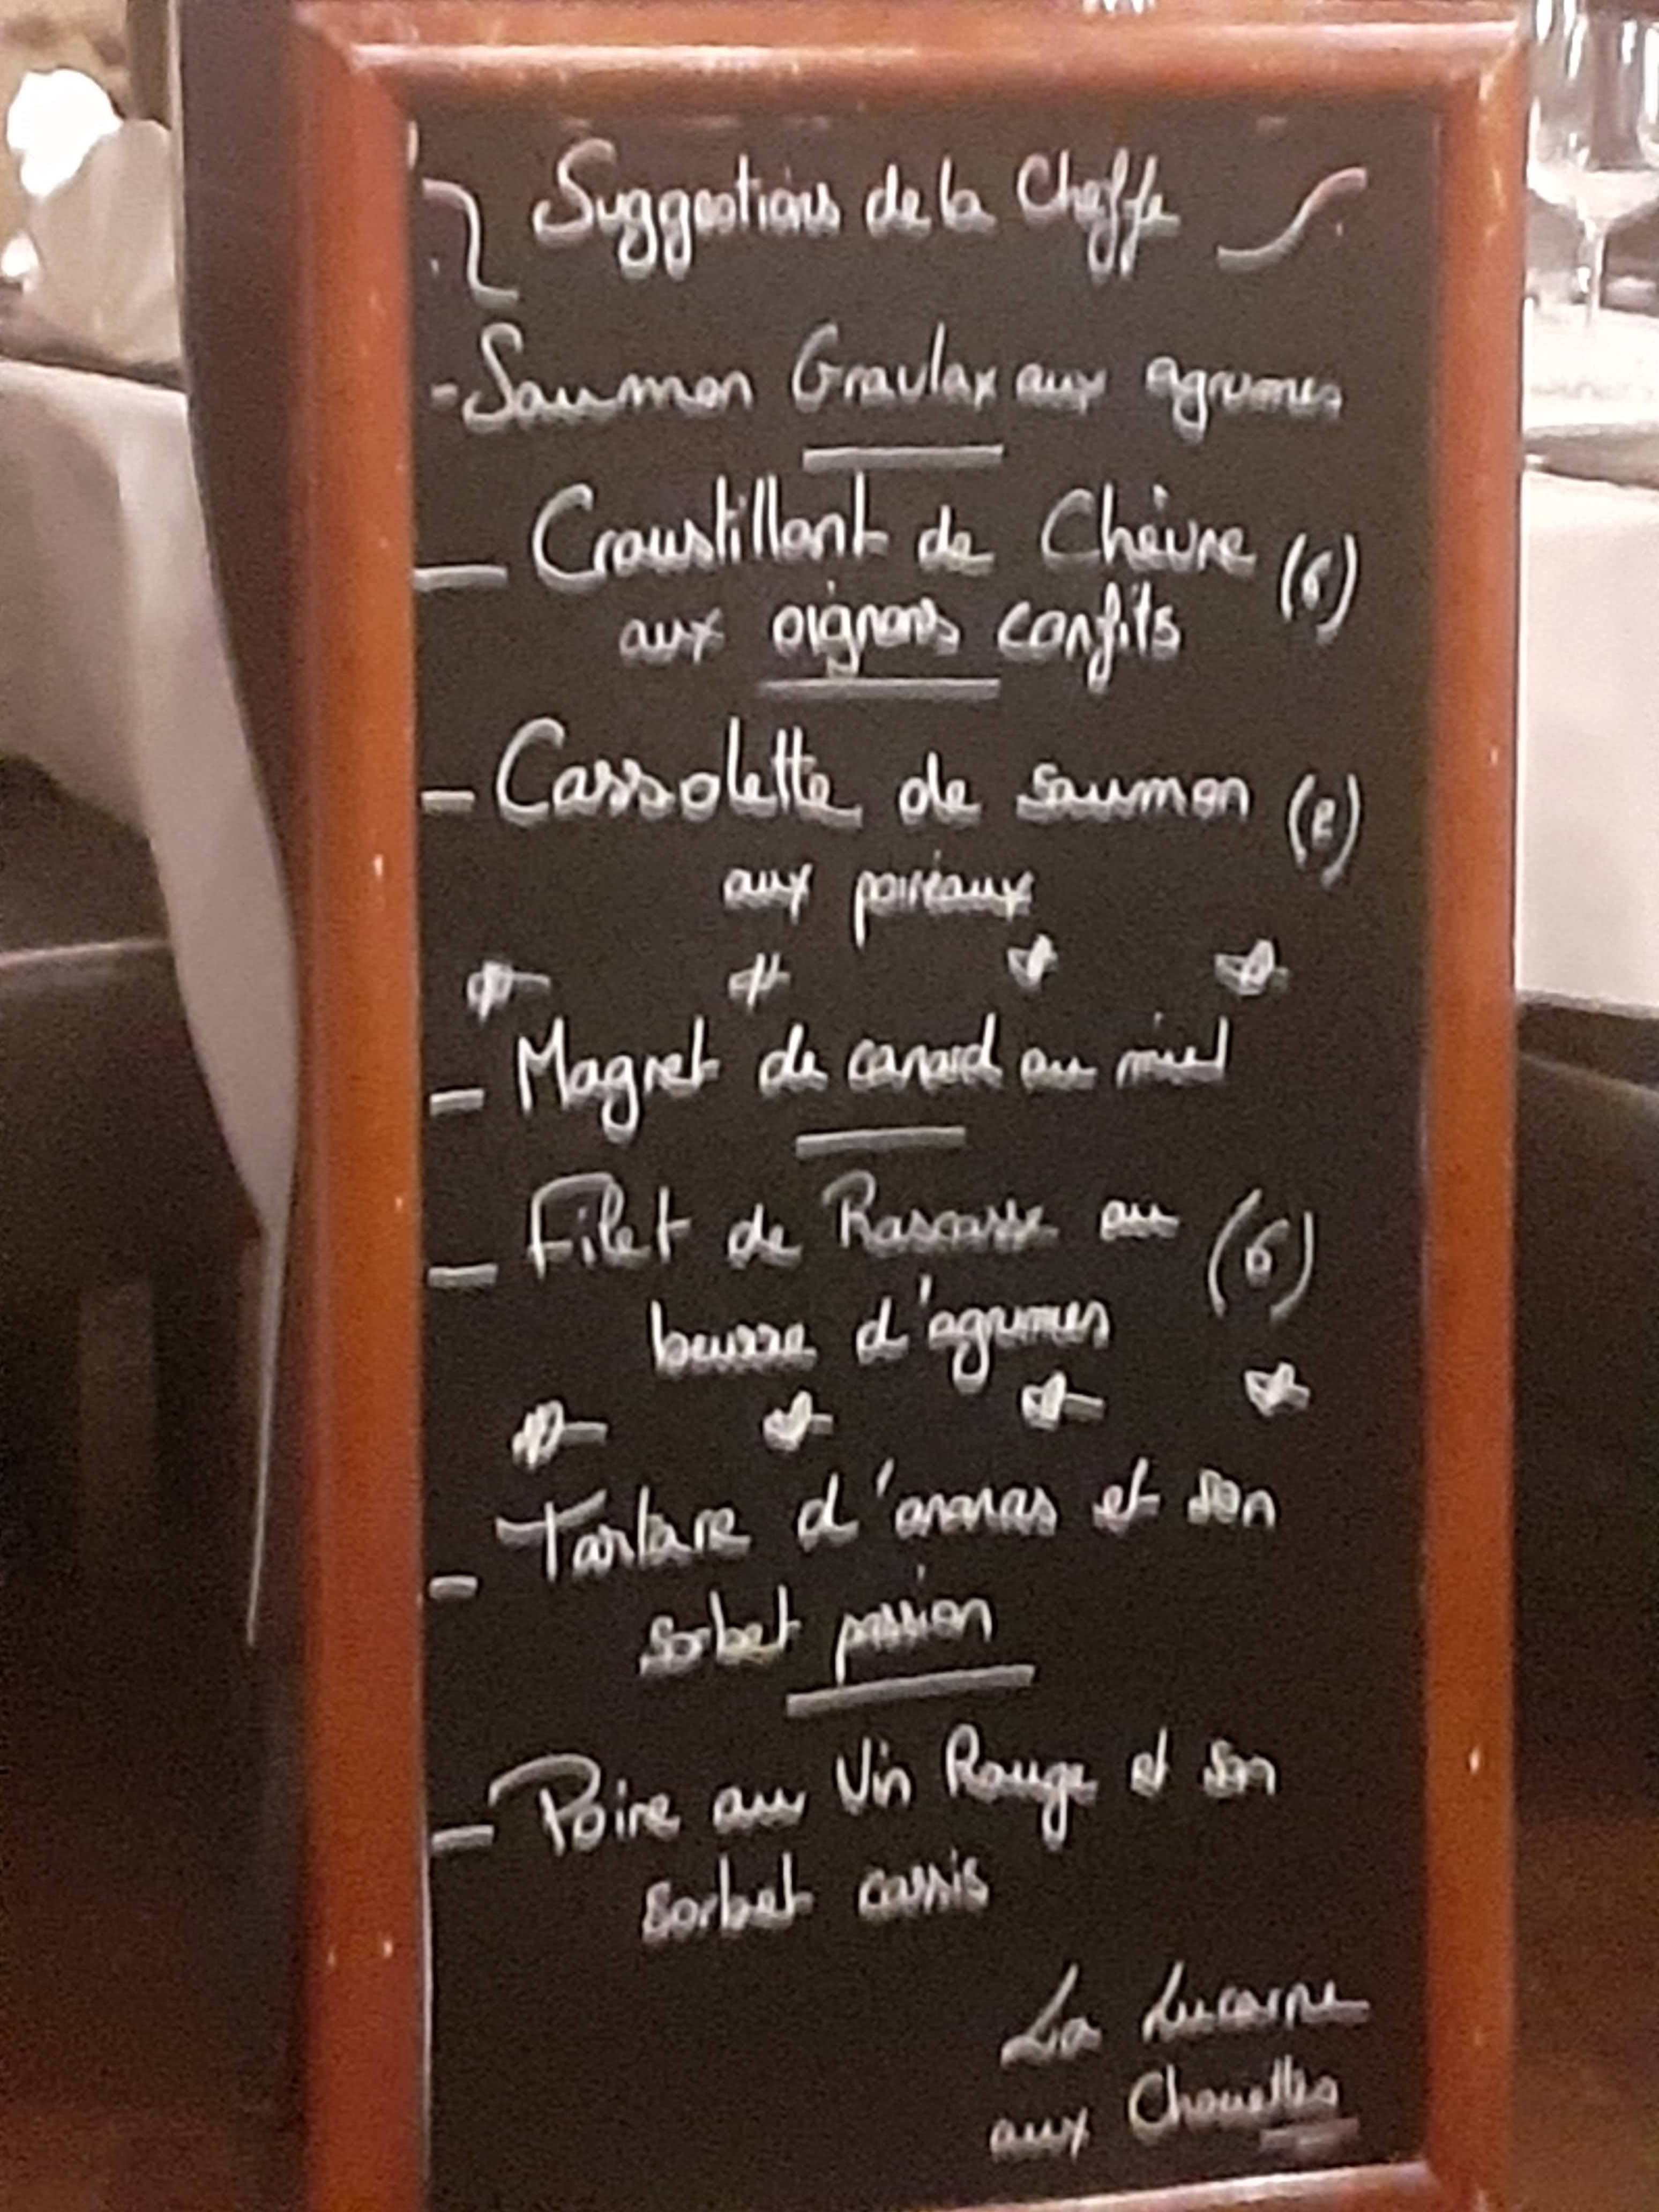 Suggestions de la Cheffe
- Saumon Gravlax aux agrumes
- Croustillant de Chèvre
aux oignons confits
- Cassolette de saumon
aux poireaux
- Magret de canard au miel
- Filet de Rascasse au (6)
beurre d'agrumes
- Tartare d'ananas et son
sorbet passion
- Poire au Vin Rouge et son
sorbet cassis
La Lucarne
aux Chouettes